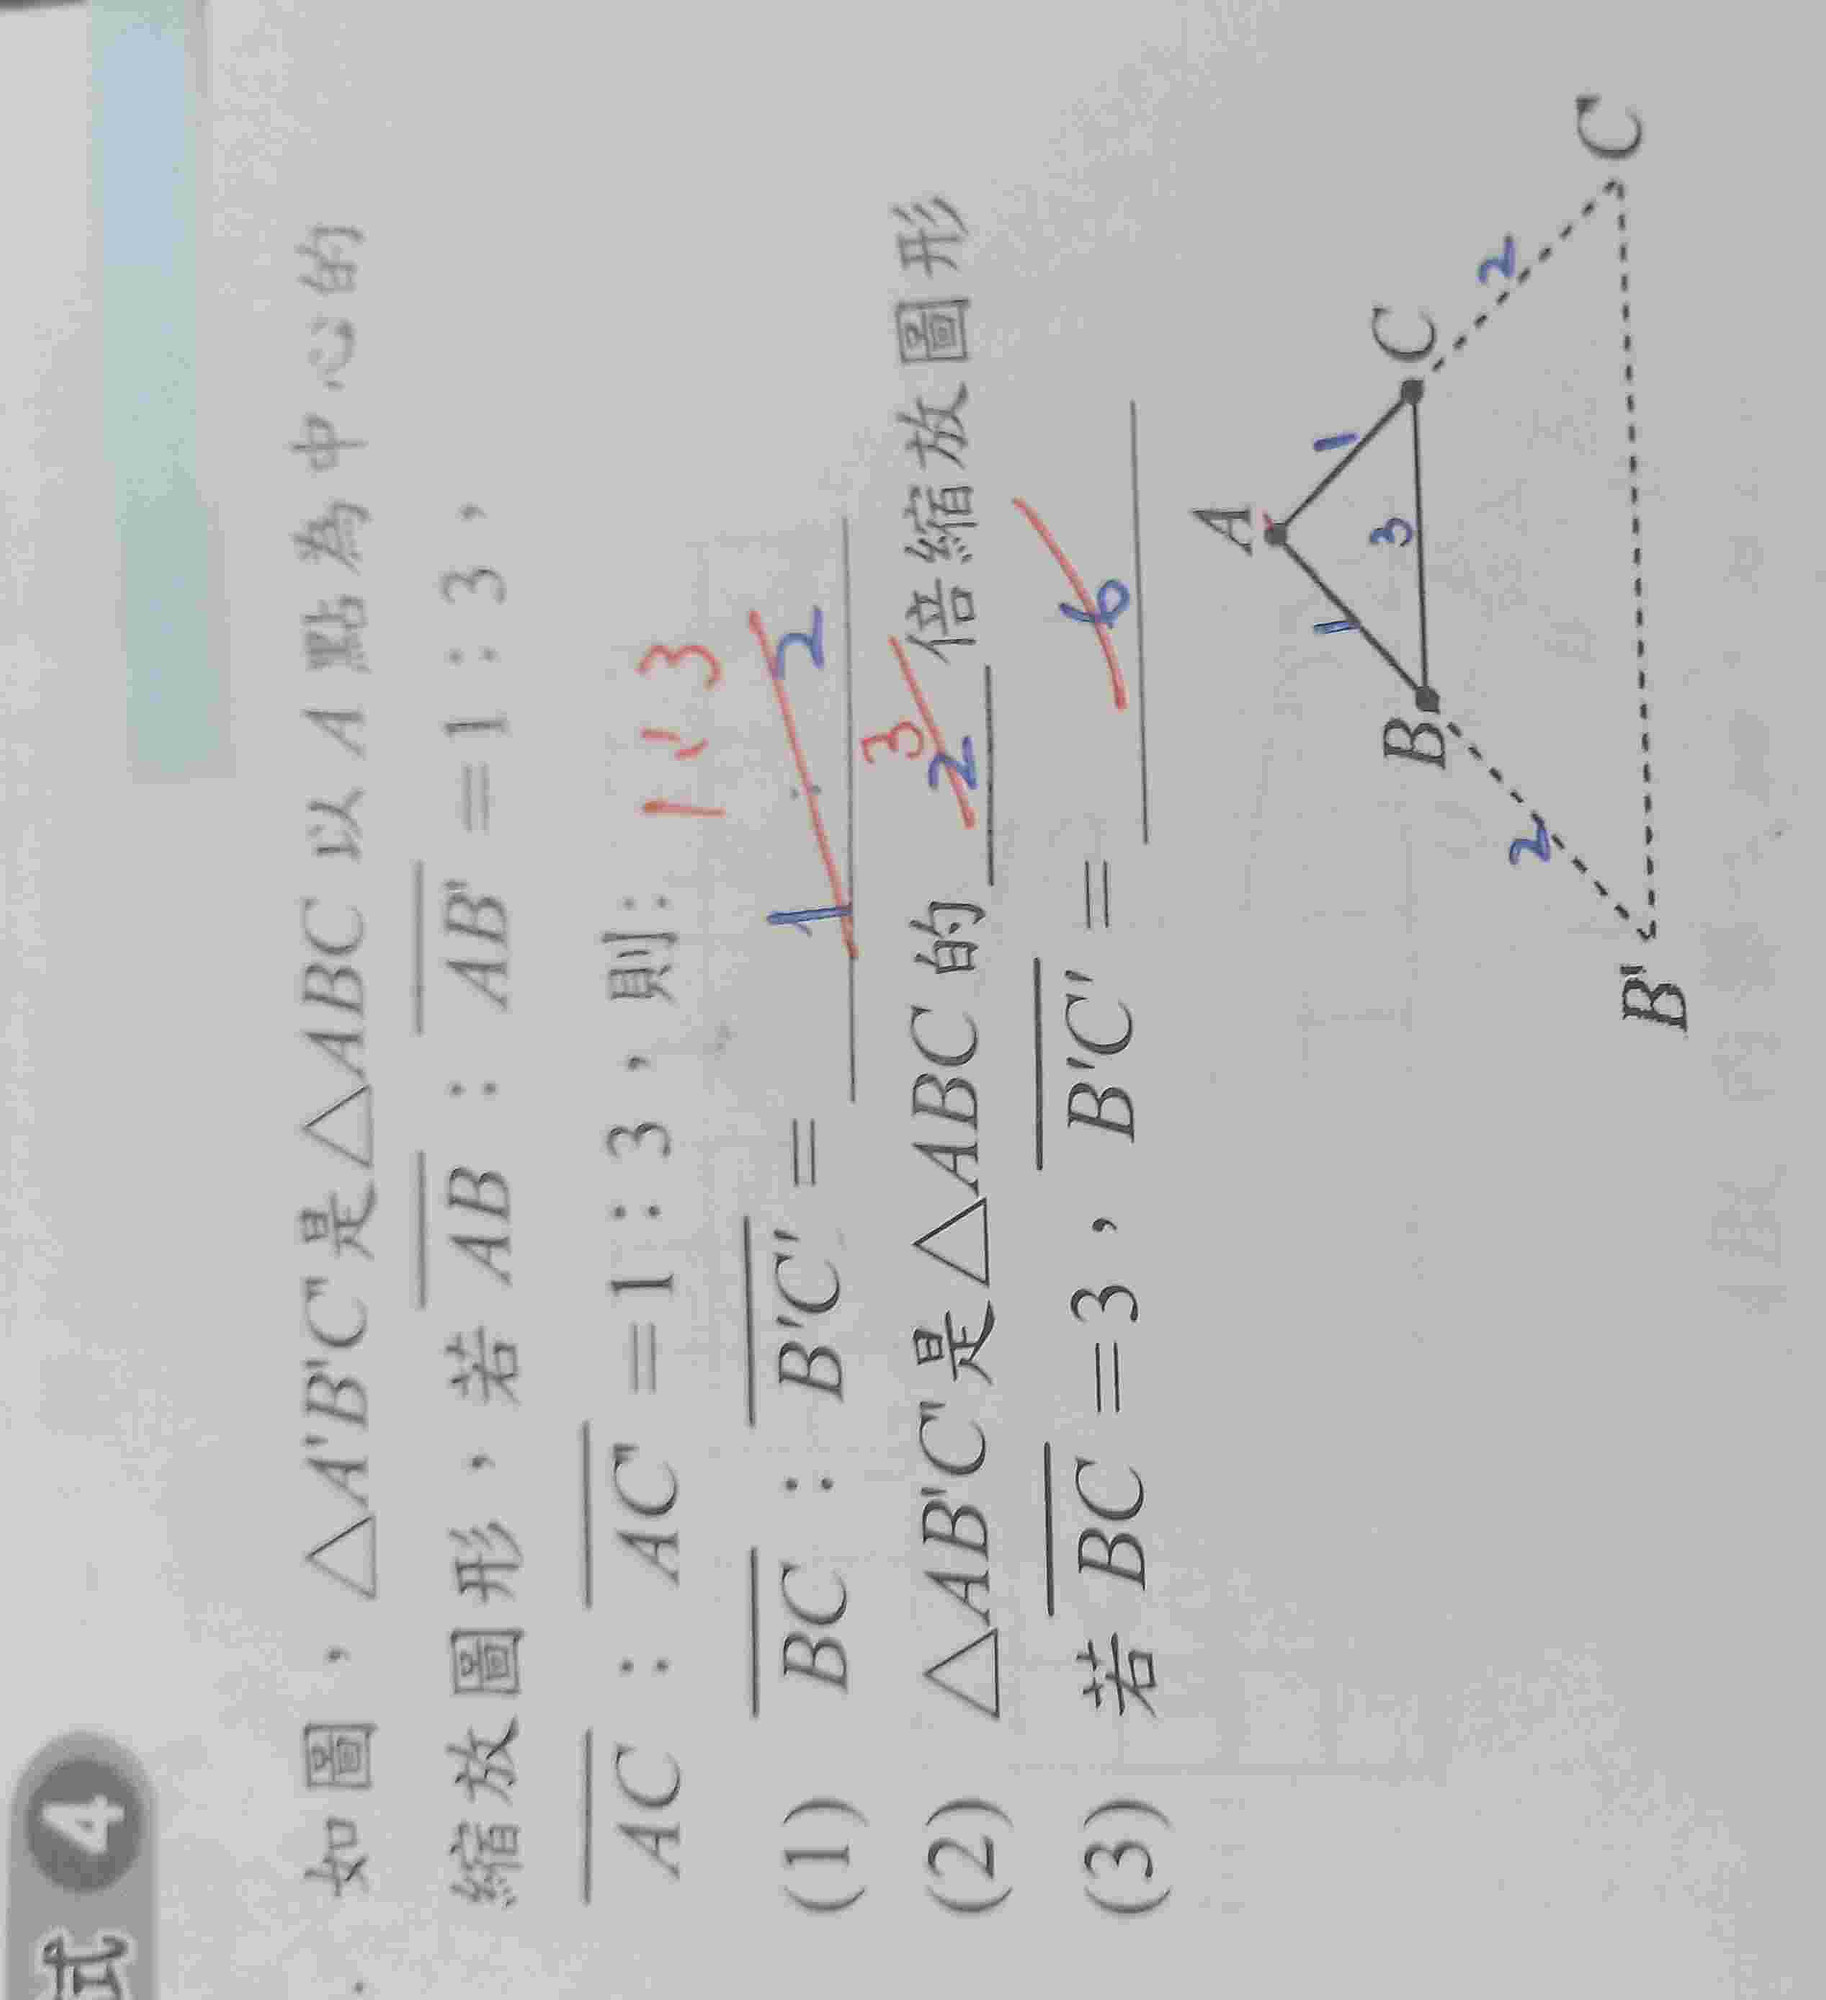 試 4
如圖，△A'B'C'是△ABC以A點為中心的
縮放圖形，若AB：AB'=1：3，
AC：AC'=1：3，則：
1：3
(1) BC：B'C'= 1：2
3
(2) △AB'C'是△ABC的 2 倍縮放圖形
(3) 若BC=3，B'C'= 6
A
1 1
B 3 C
2 2
B' C